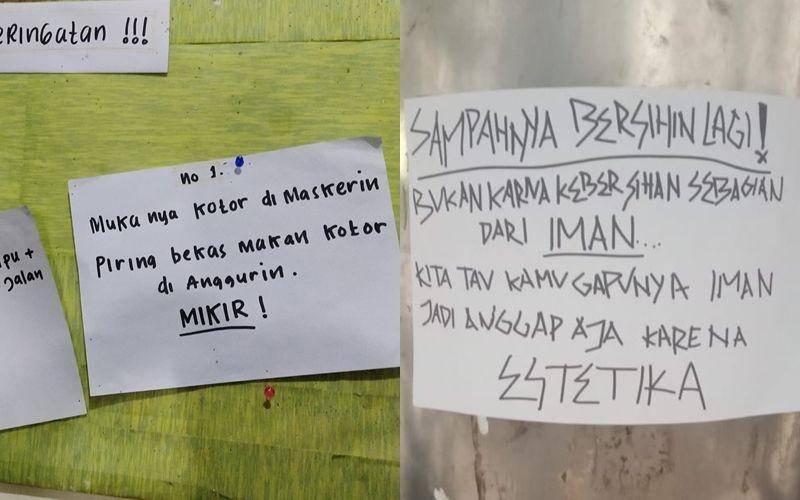 eRINGatan !!!
ipu +
Jalan
no 1.
Muka nya Kotor di Maskerin
Piring bekas Makan Kotor
di Anggurin.
MIKIR !
SAMPAHNYA BERSIHIN LAGI!
BUKAN KARNA KEBERSIHAN SEBAGIAN
DARI IMAN....
KITA TAU KAMU GAPUNYA IMAN
JADI ANGGAP AJA KARENA
ESTETIKA